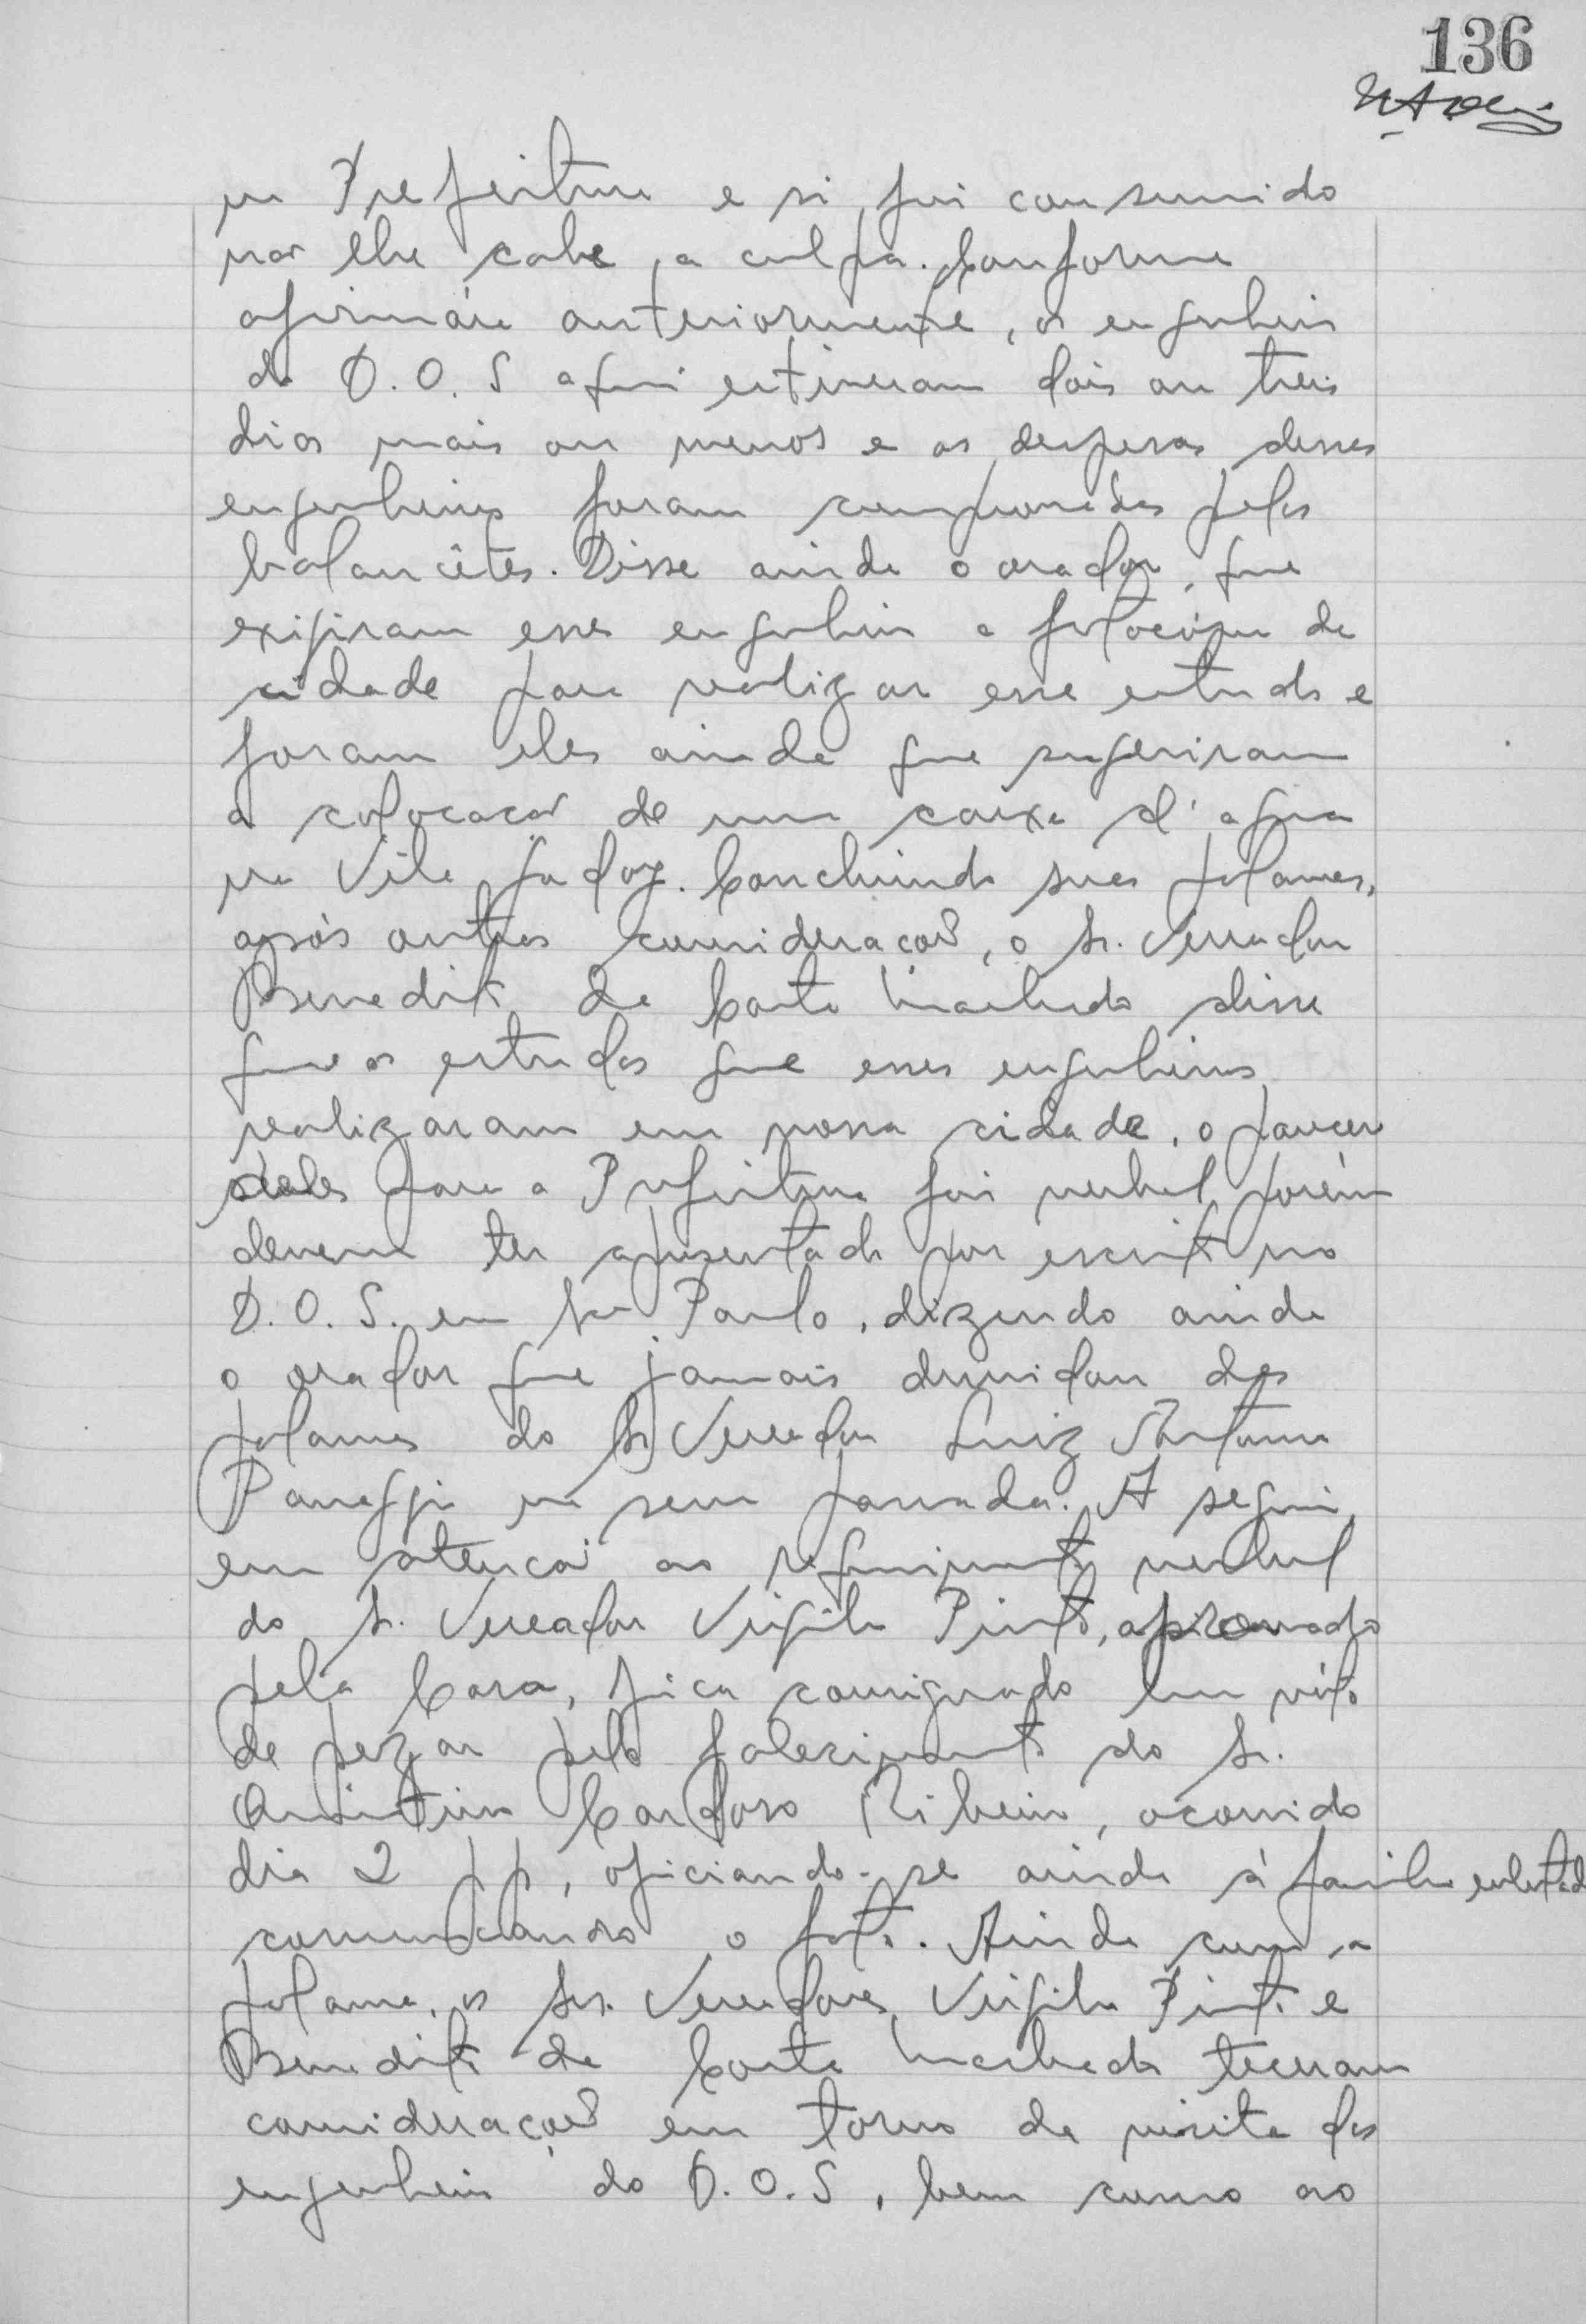 136
na Prefeitura e si foi consumido
não lhe cabe a culpa. Conforme
afirmára anteriormente, os engenheiros
do D.O.S aqui estiveram dois ou tres
dias mais ou menos e as despesas desses
engenheiros foram comprovadas pelos
balancêtes. Disse ainda o orador, que
exigiram esses engenheiros a fotocópia da
cidade para realizar esse estudo e
foram eles ainda que sugeriram
a colocação de uma caixa d'agua
na Vila Godoy. Concluindo suas palavras,
após outras considerações, o Sr. Vereador
Benedito da Costa Machado disse
que os estudos que esses engenheiros
realizaram em nossa cidade, o parecer
deles para a Prefeitura foi verbal, porém
devem ter apresentado por escrito no
D.O.S. em São Paulo, dizendo ainda
o orador que jamais duvidou das
palavras do Sr Vereador Luiz Antonio
na sem A seguir,
em atenção ao requerimento verbal
do Sr. Vereador Virgilio Pinto, aprovado
pela Casa, fica consignado um vóto
de pezar pelo falecimento do Sr.
Cardoso Ribeiro, ocorrido
dia 2 pp, oficiando-se ainda à familia enlutada
comunicando o fato. Ainda com a
palavra, os Srs. Vereadores Virgilio Pinto e
Benedito da Costa Machado teceram
considerações em torno da visita dos
engenheiros do D.O.S, bem como ao